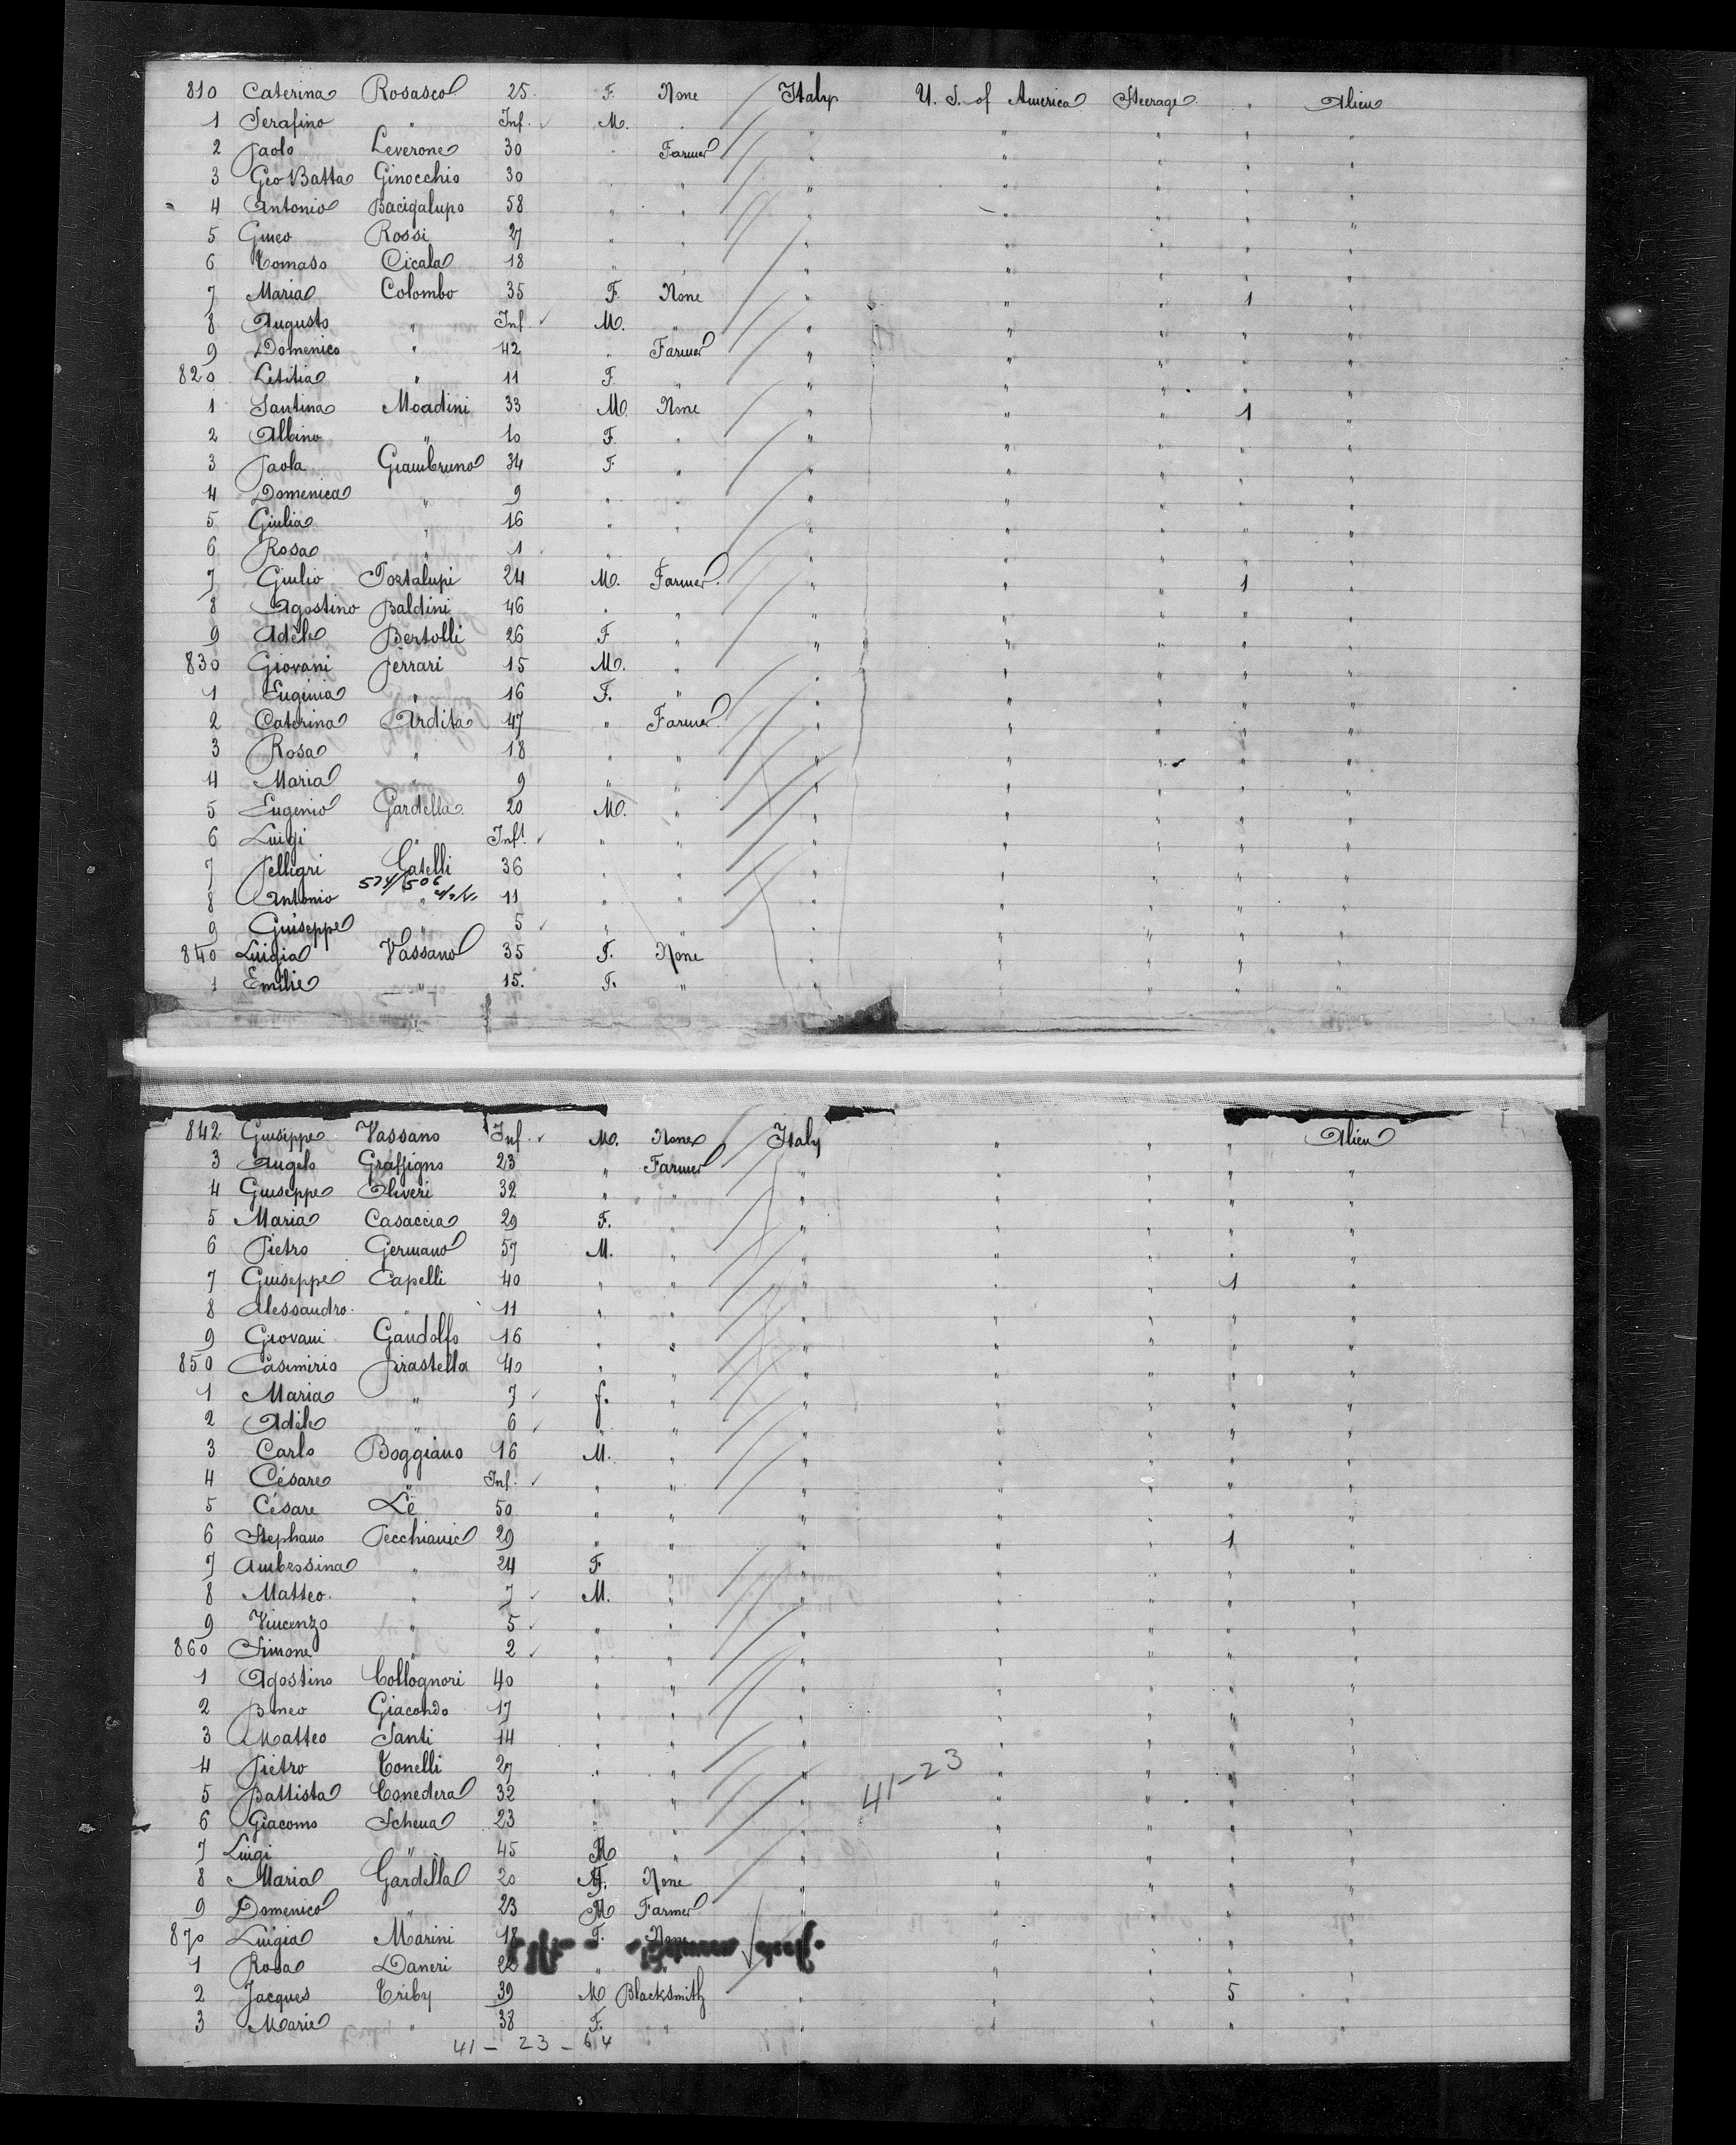 810 Caterina Rosasco 25 F. None Italy U. S. of America Steerage " Alien
1 Serafino " Inf. ✓ M. " " " " " "
2 Paolo Leverone 30 " Farmer " " " " "
3 Geo Batta Ginocchio 30 " " " " " " "
4 Antonio Bacigalupo 58 " " " " " " "
5 Rossi 27 " " " " " " "
6 Tomaso Cicala 18 " " " " " " "
7 Maria Colombo 35 F. None " " " 1 "
8 Augusto " Inf. ✓ M. " " " " " "
9 Domenico " 42 " Farmer " " " " "
820 Letitia " 11 F. " " " " " "
1 Santina Moadini 33 M. None " " " 1 "
2 Albino " 10 F. " " " " " "
3 Paola Giambruno 34 F. " " " " " "
4 Domenica " 9 " " " " " " "
5 Giulia " 16 " " " " " " "
6 Rosa " 1 " " " " " " "
7 Giulio Portalupi 24 M. Farmer " " " 1 "
8 Agostino Baldini 46 " " " " " " "
9 Adele Bertolli 26 F " " " " " "
830 Giovani Ferrari 15 M. " " " " " "
1 Euginia " 16 F. " " " " " "
2 Caterina Ardita 47 " Farmer " " " " "
3 Rosa " 18 " " " " " " "
4 Maria " 9 " " " " " " "
5 Eugenio Gardella 20 M. " " " " " "
6 Luigi " Inf. ✓ " " " " " " "
7 Pelligri Catelli 36 " " " " " " "
574/506
8 Antonio " 11 " " " " " " "
9 Guiseppe " 5 ✓ " " " " " " "
840 Luigia Vassano 35 F. None " " " " "
1 Emilie " 15. F. " " " " " "
842 Guiseppe Vassano Inf. ✓ M. None Italy " " " Alien
3 Angelo Graffigno 23 " Farmer " " " " "
4 Guiseppe Oliveri 32 " " " " " " "
5 Maria Casaccia 29 F. " " " " " "
6 Pietro Germano 57 M. " " " " " "
7 Guiseppe Capelli 40 " " " " " 1 "
8 Alessandro " 11 " " " " " " "
9 Giovani Gandolfo 16 " " " " " " "
850 Casimirio Pirastella 40 " " " " " " "
1 Maria " 7 ✓ f. " " " " " "
2 Adele " 6 ✓ " " " " " " "
3 Carlo Boggiano 16 M. " " " " " "
4 Césare " Inf. ✓ " " " " " " "
5 Césare Lé 50 " " " " " " "
6 Stephano 29 " " " " " 1 "
7 Ambrosina " 24 F. " " " " " "
8 Matteo " 7 ✓ M. " " " " " "
9 Vincenzo " 5 ✓ " " " " " " "
860 Simone " 2 ✓ " " " " " " "
1 Agostino Collognori 40 " " " " " " "
2 Giacondo 17 " " " " " " "
3 Matteo Santi 14 " " " " " " "
4 Pietro Tonelli 27 " " " " " " "
5 Battista Conedera 32 " " " " " " "
41-23
6 Giacomo Schena 23 " " " " " " "
7 Luigi " 45 M " " " " " "
8 Maria Gardella 20 F. None " " " " "
9 Domenico " 23 M Farmer " " " " "
870 Luigia Marini 18 F. None " " " "
1 Rosa Daneri 22 " " " " "
2 Jacques Triby 39 M Blacksmith " " " 5 "
3 Marie " 38 F. " " " " " "
41 - 23 - 64